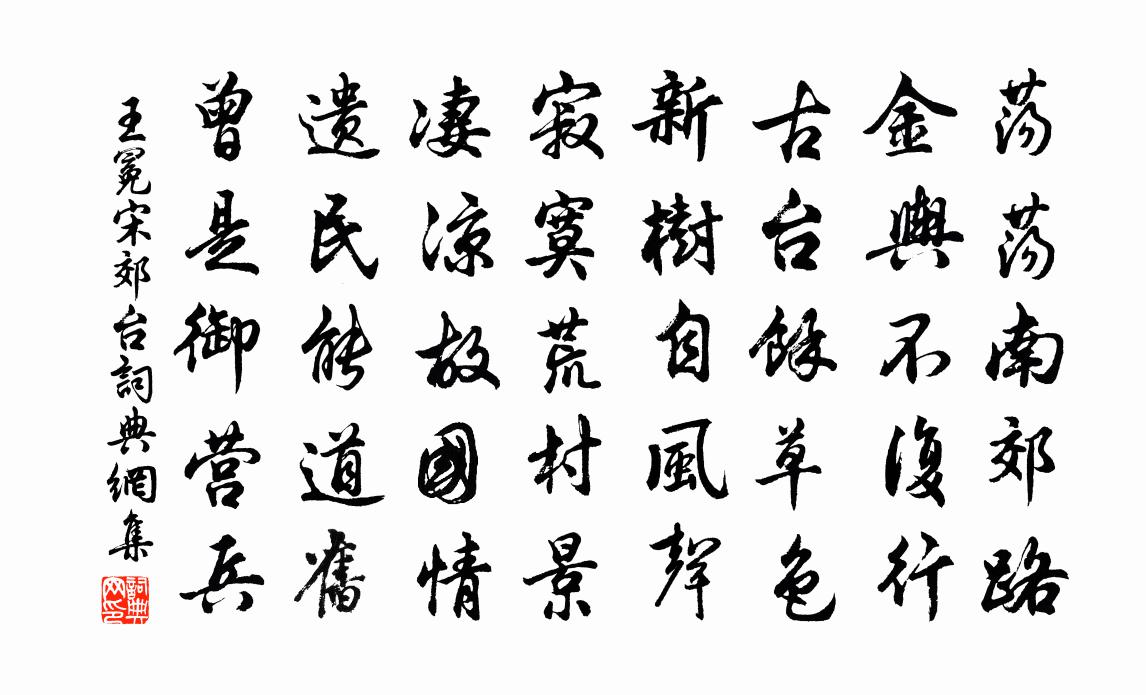 荡荡南郊路
金輿不復行
古台餘草色
新樹自風聲
寂寞荒村景
凄凉故國情
遗民能道舊
曾是御营兵
王冕宋郊台詞典網集
詞典